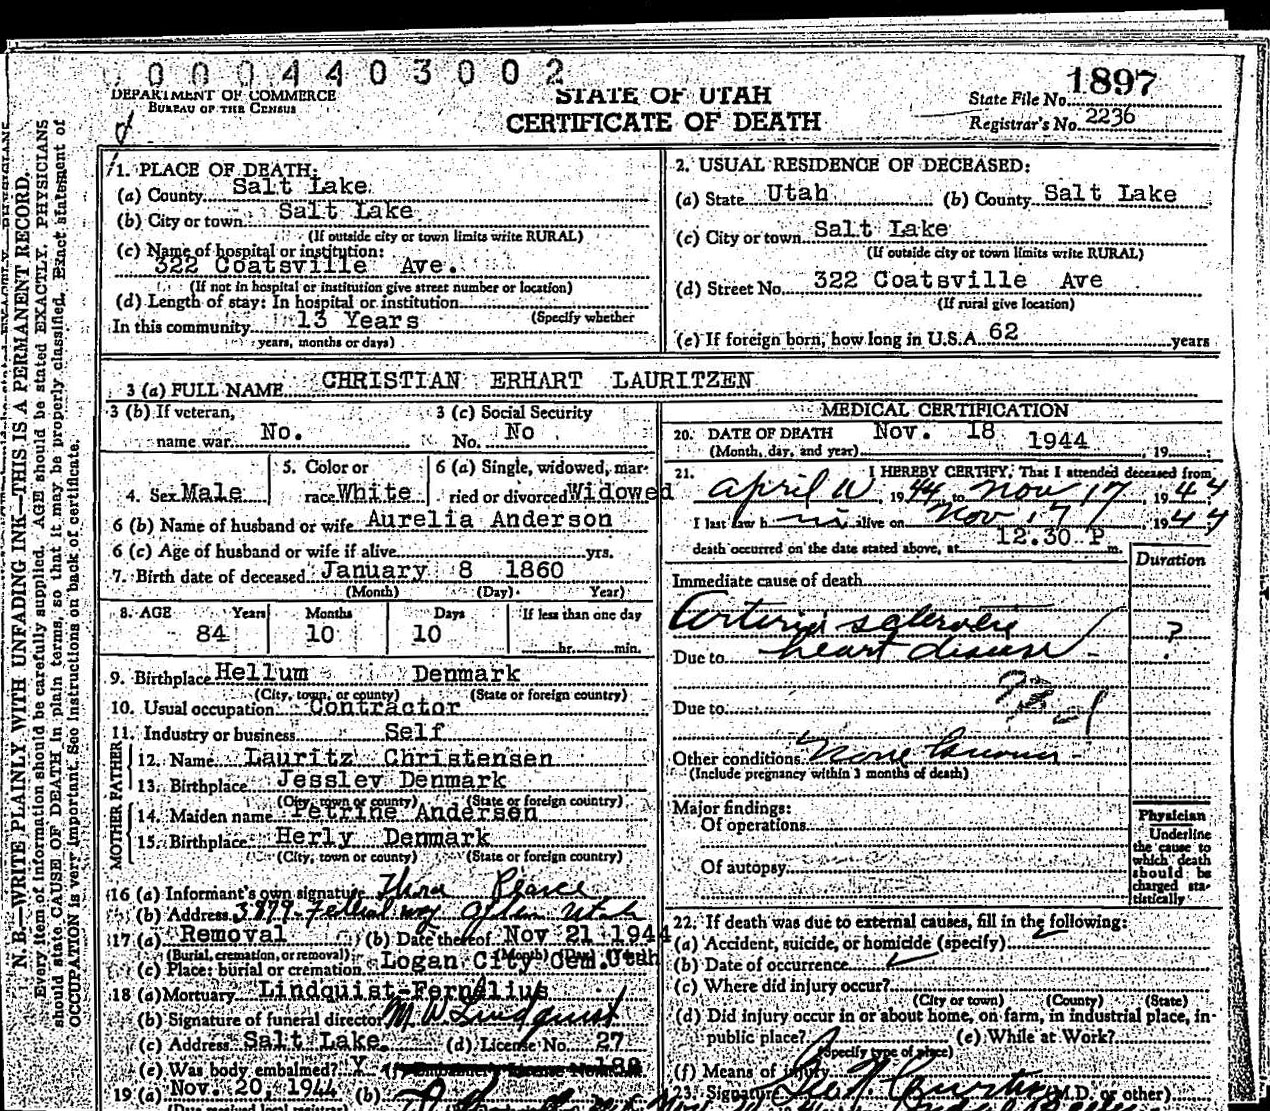 0004403002
DEPARTMENT OF COMMERCE
BUREAU OF THE CENSUS
STATE OF UTAH
CERTIFICATE OF DEATH
State File No. 1897
Registrar's No. 2236
N. B.—WRITE PLAINLY WITH UNFADING INK—THIS IS A PERMANENT RECORD.
Every item of information should be carefully supplied. AGE should be stated EXACTLY. PHYSICIANS
should state CAUSE OF DEATH in plain terms, so that it may be properly classified. Exact statement of
OCCUPATION is very important. See instructions on back of certificate.
1. PLACE OF DEATH:
(a) County Salt Lake
(b) City or town Salt Lake
(If outside city or town limits write RURAL)
(c) Name of hospital or institution:
322 Coatsville Ave.
(If not in hospital or institution give street number or location)
(d) Length of stay: In hospital or institution
(Specify whether
In this community 13 Years
years, months or days)
2. USUAL RESIDENCE OF DECEASED:
(a) State Utah (b) County Salt Lake
(c) City or town Salt Lake
(If outside city or town limits write RURAL)
(d) Street No. 322 Coatsville Ave
(If rural give location)
(e) If foreign born, how long in U.S.A. 62 years
3 (a) FULL NAME CHRISTIAN ERHART LAURITZEN
3 (b) If veteran,
name war No.
3 (c) Social Security
No. No
4. Sex Male
5. Color or
race White
6 (a) Single, widowed, mar-
ried or divorced Widowed
6 (b) Name of husband or wife Aurelia Anderson
6 (c) Age of husband or wife if alive yrs.
7. Birth date of deceased January 8 1860
(Month) (Day) Year)
8. AGE Years Months Days If less than one day
84 10 10 hr. min.
9. Birthplace Hellum Denmark
(City, town, or county) (State or foreign country)
10. Usual occupation Contractor
11. Industry or business Self
FATHER
12. Name Lauritz Christensen
13. Birthplace Jesslev Denmark
(City, town or county) (State or foreign country)
MOTHER
14. Maiden name Petrine Andersen
15. Birthplace Herly Denmark
(City, town or county) (State or foreign country)
16 (a) Informant's own signature Thra Pearce
(b) Address 3879 Utah
17 (a) Removal (b) Date thereof Nov 21 1944
(Burial, cremation, or removal) (Month) (Day)
(c) Place: burial or cremation Logan City Cem. Utah
18 (a) Mortuary Lindquist-Fernelius
(b) Signature of funeral director M W Lindquist
(c) Address Salt Lake. (d) License No. 27
(e) Was body embalmed? Y
19 (a) Nov. 20, 1944 (b)
MEDICAL CERTIFICATION
20. DATE OF DEATH Nov. 18 1944
(Month, day, and year) , 19
21. I HEREBY CERTIFY, That I attended deceased from
April 10, 1944, to Nov 17, 1944
I last saw h im alive on Nov 17, 1944
death occurred on the date stated above, at 12.30 P m.
Duration
Immediate cause of death
Arterio sclerotic
?
Due to heart disease
Due to
Other conditions None known
(Include pregnancy within 3 months of death)
Major findings:
Of operations
Of autopsy
Physician
Underline
the cause to
which death
should be
charged sta-
tistically
22. If death was due to external causes, fill in the following:
(a) Accident, suicide, or homicide (specify)
(b) Date of occurrence
(c) Where did injury occur?
(City or town) (County) (State)
(d) Did injury occur in or about home, on farm, in industrial place, in
public place? (e) While at Work?
(Specify type of place)
(f) Means of injury
23. Signature (M.D. or other)